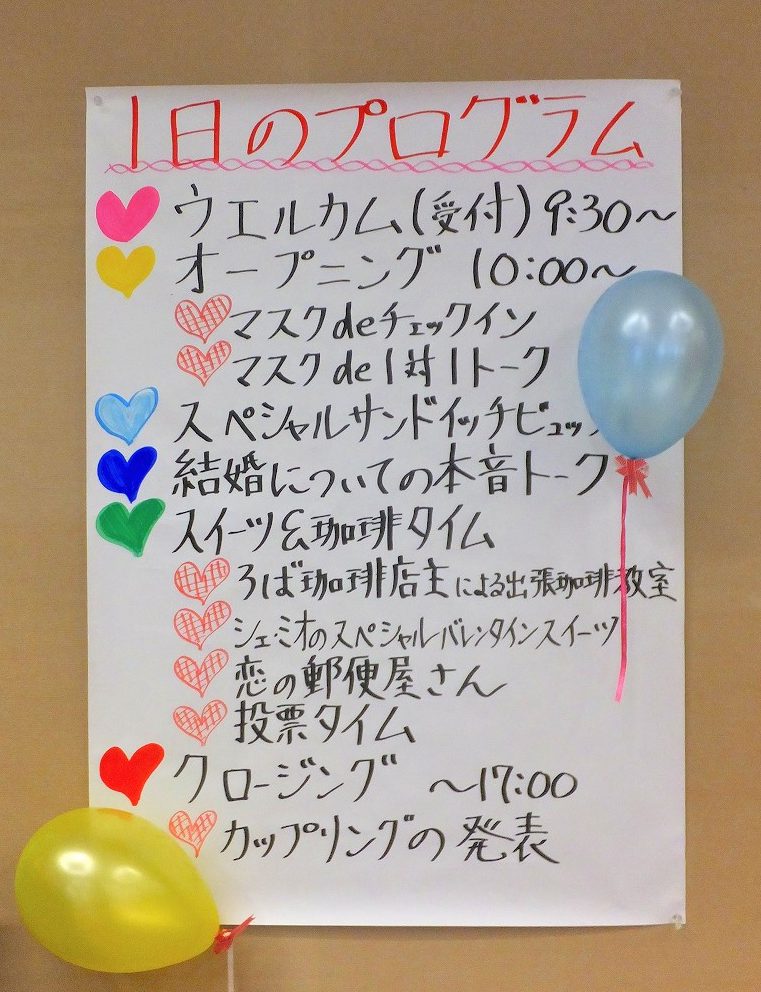 1日のプログラム
ウエルカム(受付) 9:30〜
オープニング 10:00〜
マスクdeチェックイン
マスクde1対1トーク
スペシャルサンドイッチビュッ
結婚についての本音トーク
スイーツ&珈琲タイム
ろば珈琲店主による出張珈琲教室
シェ・ミオのスペシャルバレンタインスイーツ
恋の郵便屋さん
投票タイム
クロージング 〜17:00
カップリングの発表